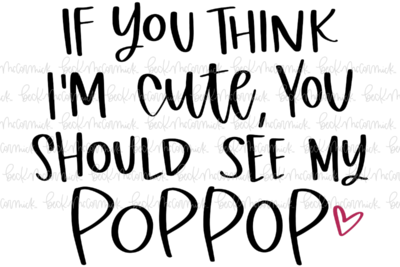 IF YOU THINK
I'M CUTE, YOU
SHOULD SEE MY
POPPOP